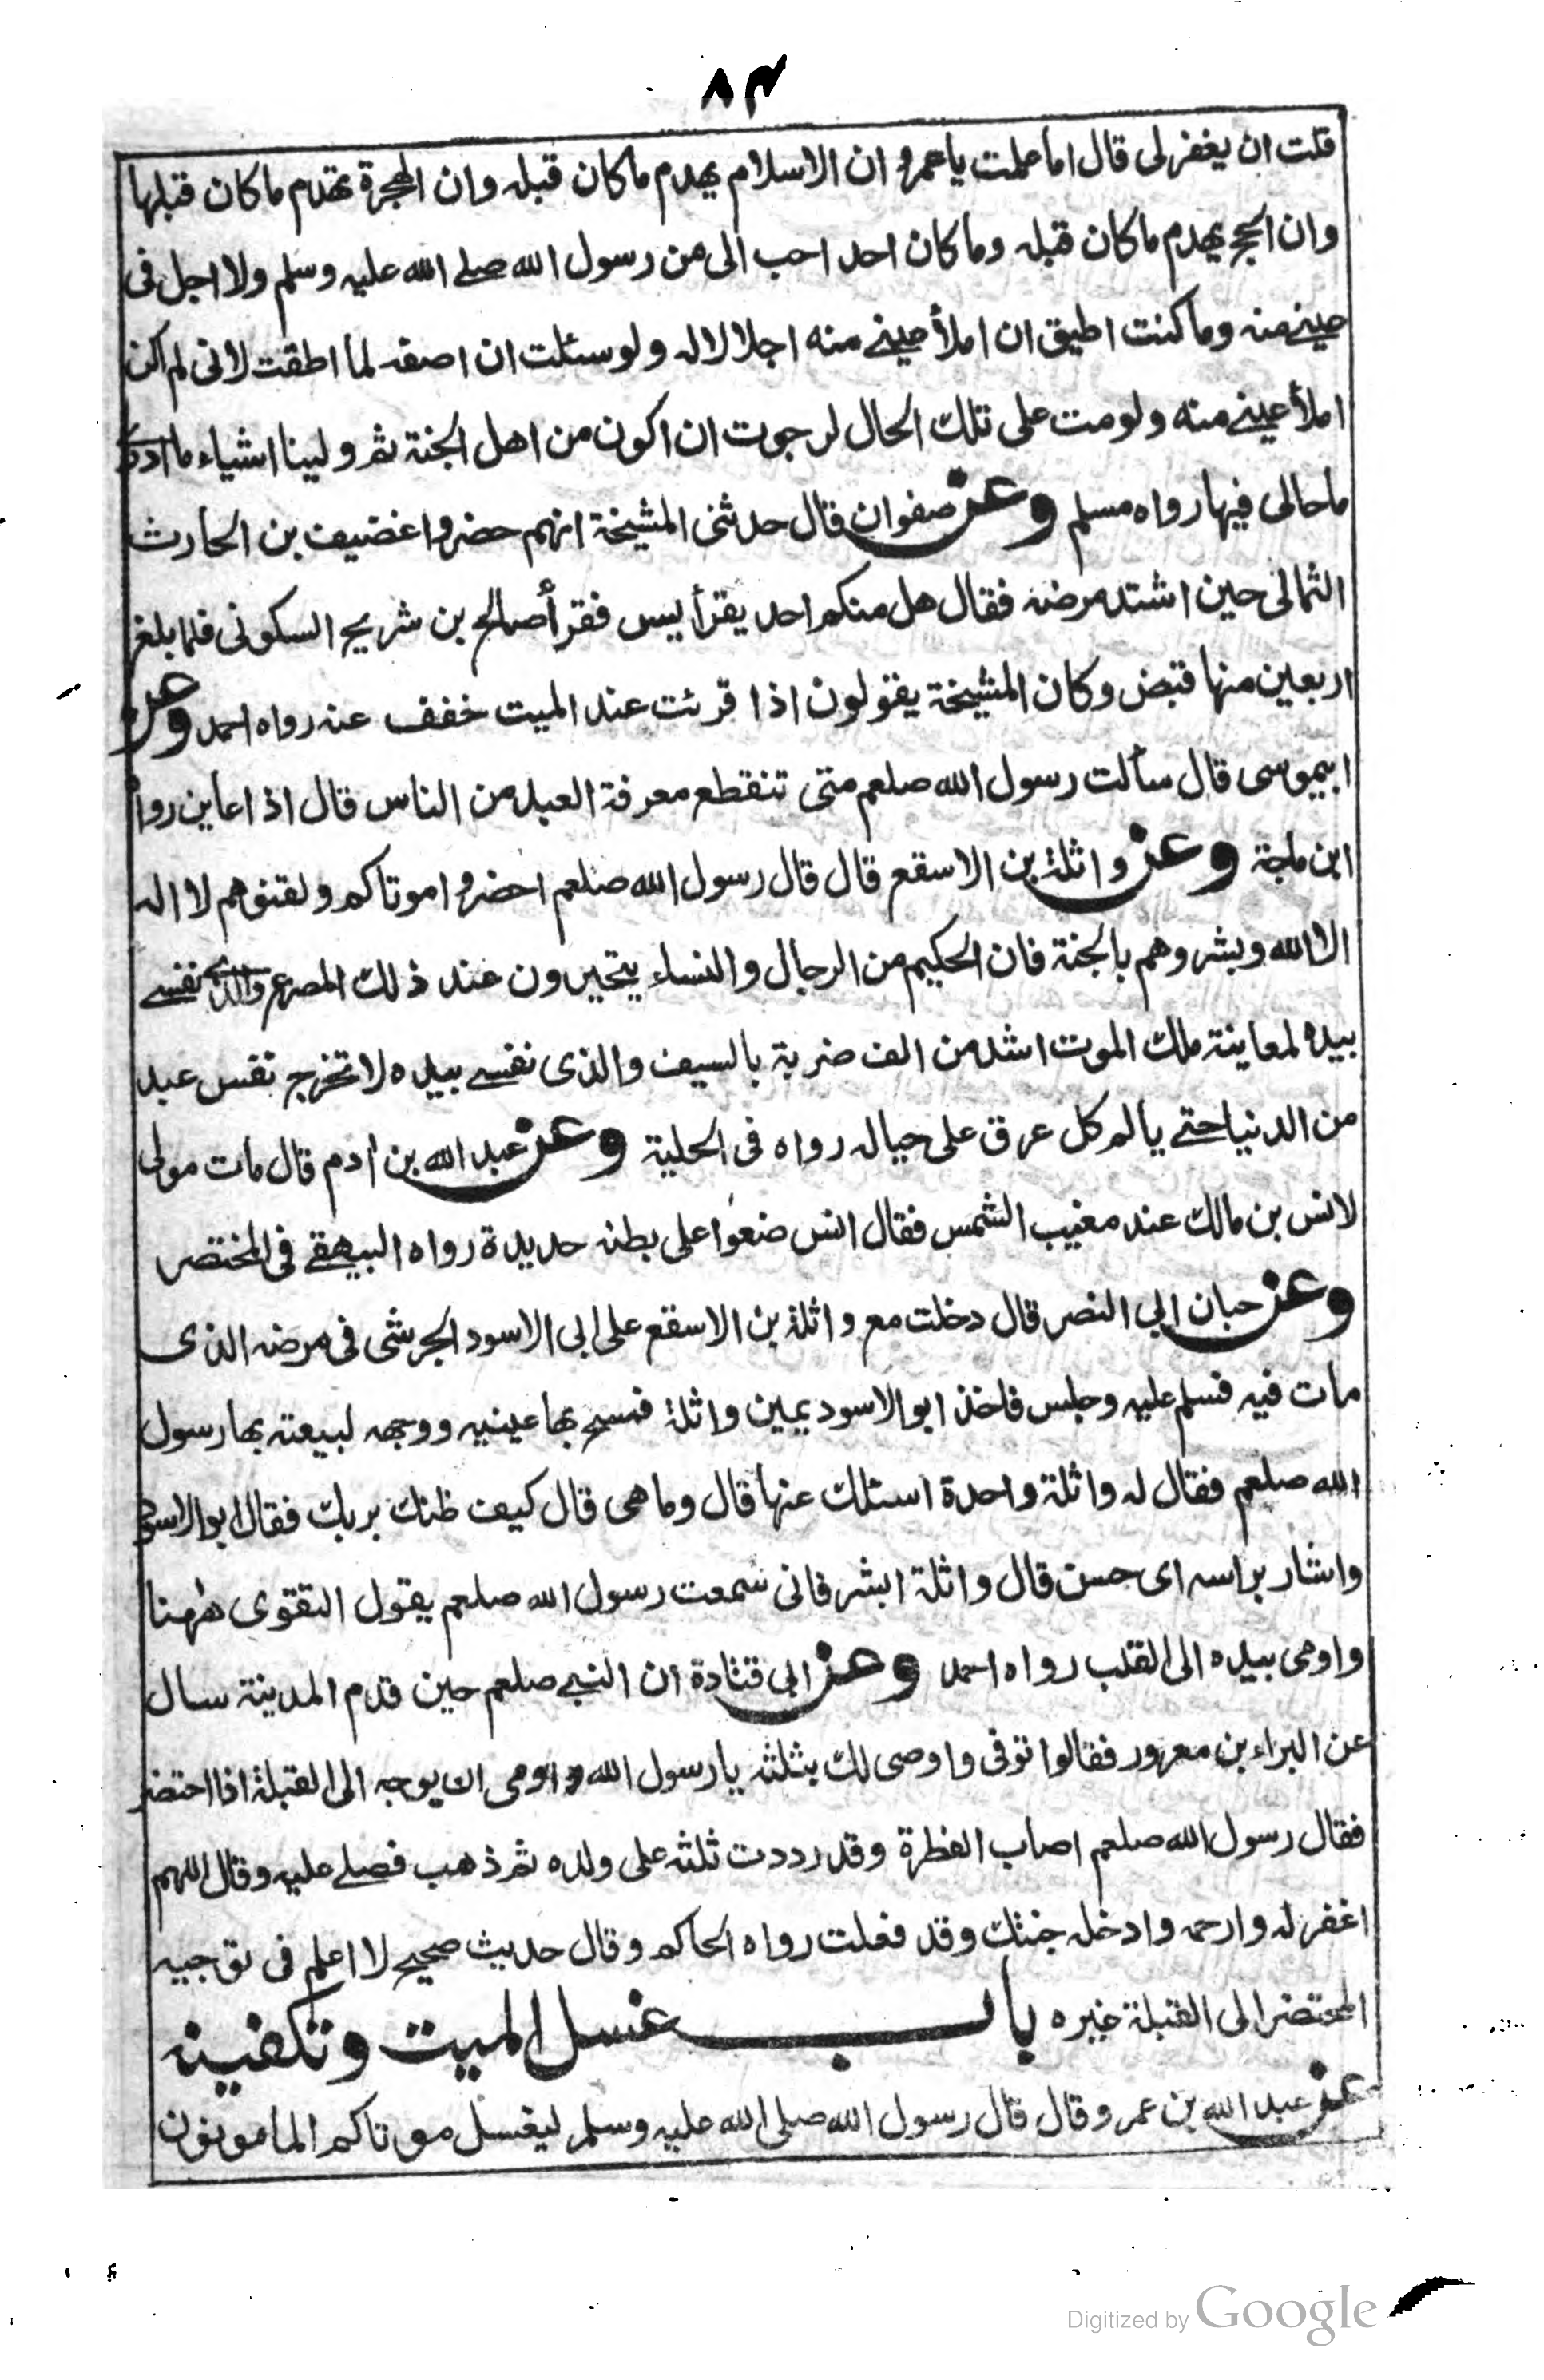 ٨٣
قلت ان يغفر لى قال اما علمت يا عمرو ان الاسلام يهدم ما كان قبله وان الهجرة تهدم ما كان قبلها
وان الحج يهدم ما كان قبله وما كان احد احب الى من رسول الله صلے الله عليه وسلم ولا اجل فى
عينے منه وما كنت اطيق ان املأ عينے منه اجلالا له ولو سئلت ان اصفه لما اطقت لانى لم اكن
املأ عينے منه ولو مت على تلك الحال لرجوت ان اكون من اهل الجنة ثم ولينا اشياء ما ادرى
ما حالى فيها رواه مسلم وعن صفوان قال حدثنى المشيخة انهم حضروا غضيف بن الحارث
الثمالى حين اشتد مرضه فقال هل منكم احد يقرأ يس فقرأ صالح بن شريح السكونى فلما بلغ
اربعين منها قبض وكان المشيخة يقولون اذا قرئت عند الميت خفف عنه رواه احمد وعن
ابيموسى قال سألت رسول الله صلعم متى تنقطع معرفة العبد من الناس قال اذا عاين رواه
ابن ماجة وعن واثلة بن الاسقع قال قال رسول الله صلعم احضروا موتاكم ولقنوهم لا اله
الا الله وبشروهم بالجنة فان الحكيم من الرجال والنساء يتحيرون عند ذلك المصرع والذى نفسے
بيده لمعاينة ملك الموت اشد من الف ضربة بالسيف والذى نفسے بيده لا تخرج نفس عبد
من الدنيا حتے يألم كل عرق على حياله رواه فى الحلية وعن عبد الله بن ادم قال مات مولى
لانس بن مالك عند مغيب الشمس فقال انس ضعوا على بطنه حديدة رواه البيهقے فى المختصر
وعن حبان ابي النصر قال دخلت مع واثلة بن الاسقع على ابى الاسود الجرشى فى مرضه الذى
مات فيه فسلم عليه وجلس فاخذ ابو الاسود يمين واثلة فمسح بها عينيه ووجهه لبيعته بها رسول
الله صلعم فقال له واثلة واحدة اسئلك عنها قال وما هى قال كيف ظنك بربك فقال ابو الاسود
واشار براسه اى حسن قال واثلة ابشر فانى سمعت رسول الله صلعم يقول التقوى ههنا
واومى بيده الى القلب رواه احمد وعن ابى قتادة ان النبے صلعم حين قدم المدينة سال
عن البراء بن معرور فقالوا توفى واوصى لك بثلثه يا رسول الله واومى ان يوجه الى القبلة اذا احتضر
فقال رسول الله صلعم اصاب الفطرة وقد رددت ثلثه على ولده ثم ذهب فصلے عليه وقال اللهم
اغفر له وارحمه وادخله جنتك وقد فعلت رواه الحاكم وقال حديث صحيح لا اعلم فى توجيه
المحتضر الى القبلة غيره باب غسل الميت وتكفينه
عن عبد الله بن عمر وقال قال رسول الله صلى الله عليه وسلم ليغسل موتاكم المامونون
Digitized by Google